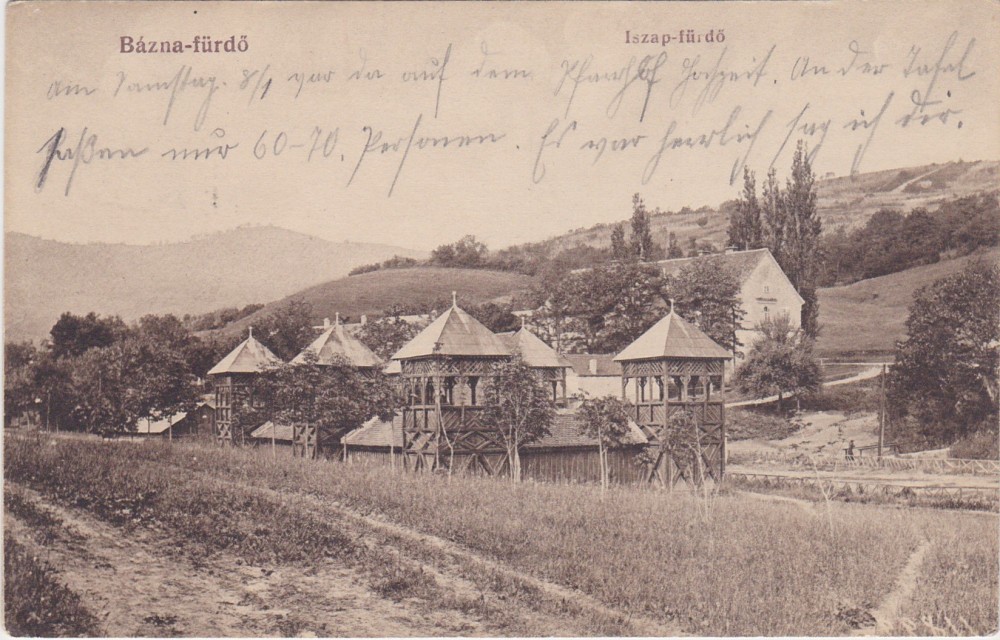 Bázna-fürdő
Iszap-fürdő
Am Samstag 8/1 war da auf dem Pfarrhof Hochzeit. An der Tafel
saßen nur 60-70. Personen. Es war herrlich sag ich dir.